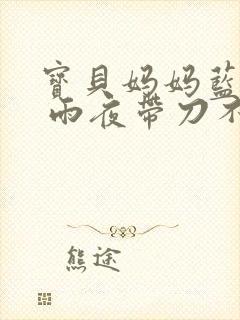 寶貝妈妈藍
雨夜帶刀不
熊途